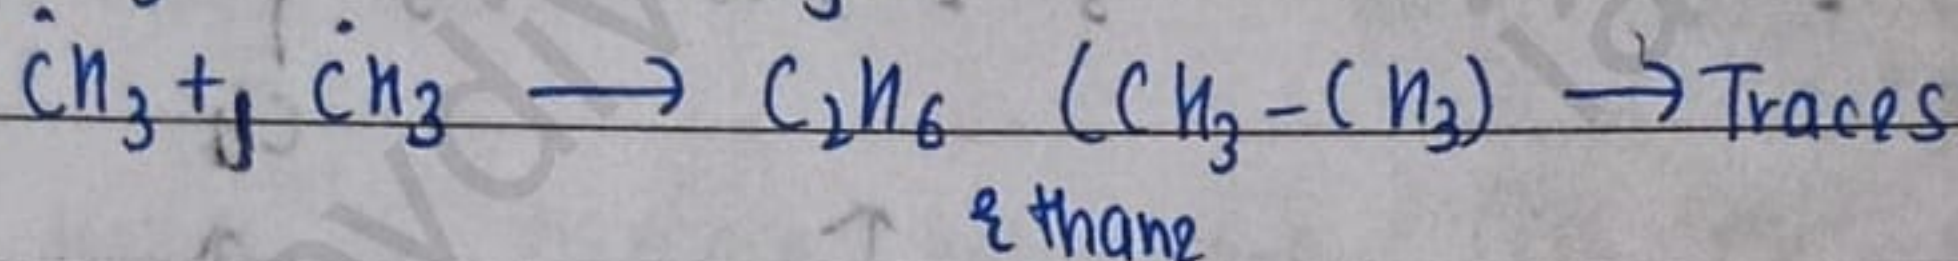 ĊH₃ + ĊH₃ → C₂H₆ (CH₃-CH₃) → Traces
Ethane